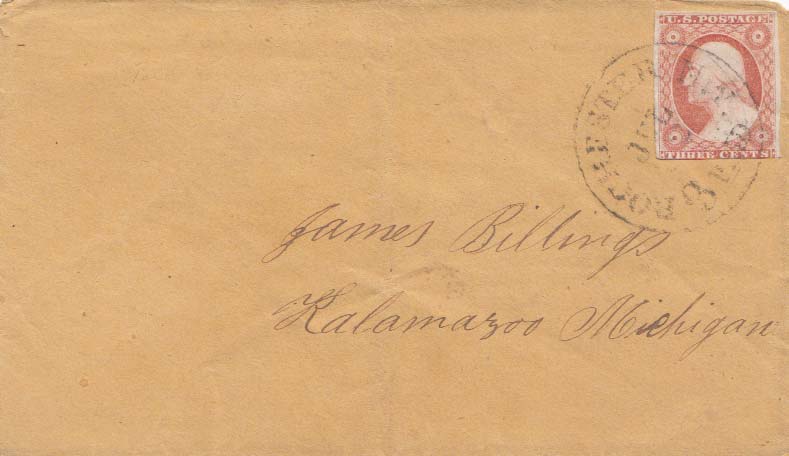 U.S. POSTAGE
THREE CENTS
ROCHESTER N.Y.
JUL
3
James Billings
Kalamazoo Michigan